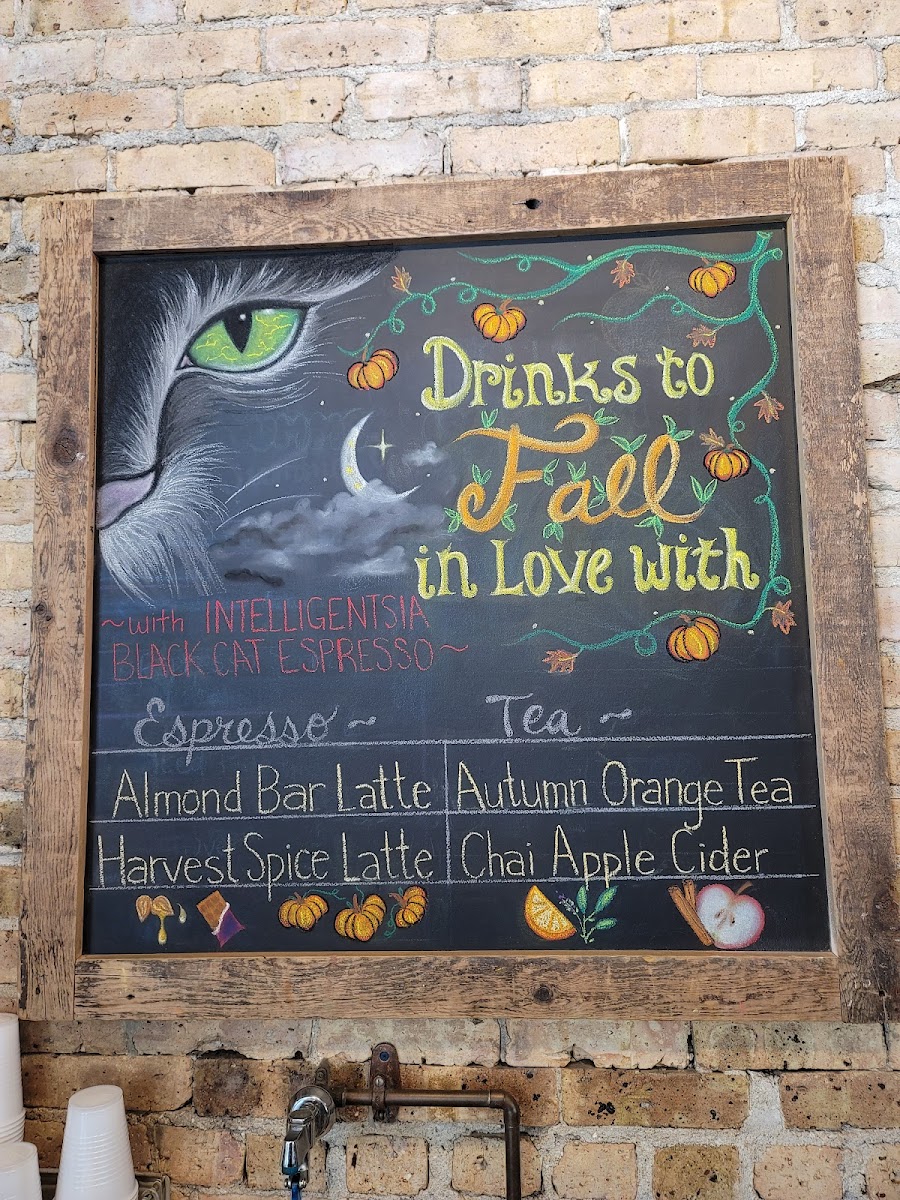 Drinks to
Fall
in Love with
~with INTELLIGENTSIA
BLACK CAT ESPRESSO~
Espresso~
Almond Bar Latte
Harvest Spice Latte
Tea~
Autumn Orange Tea
Chai Apple Cider